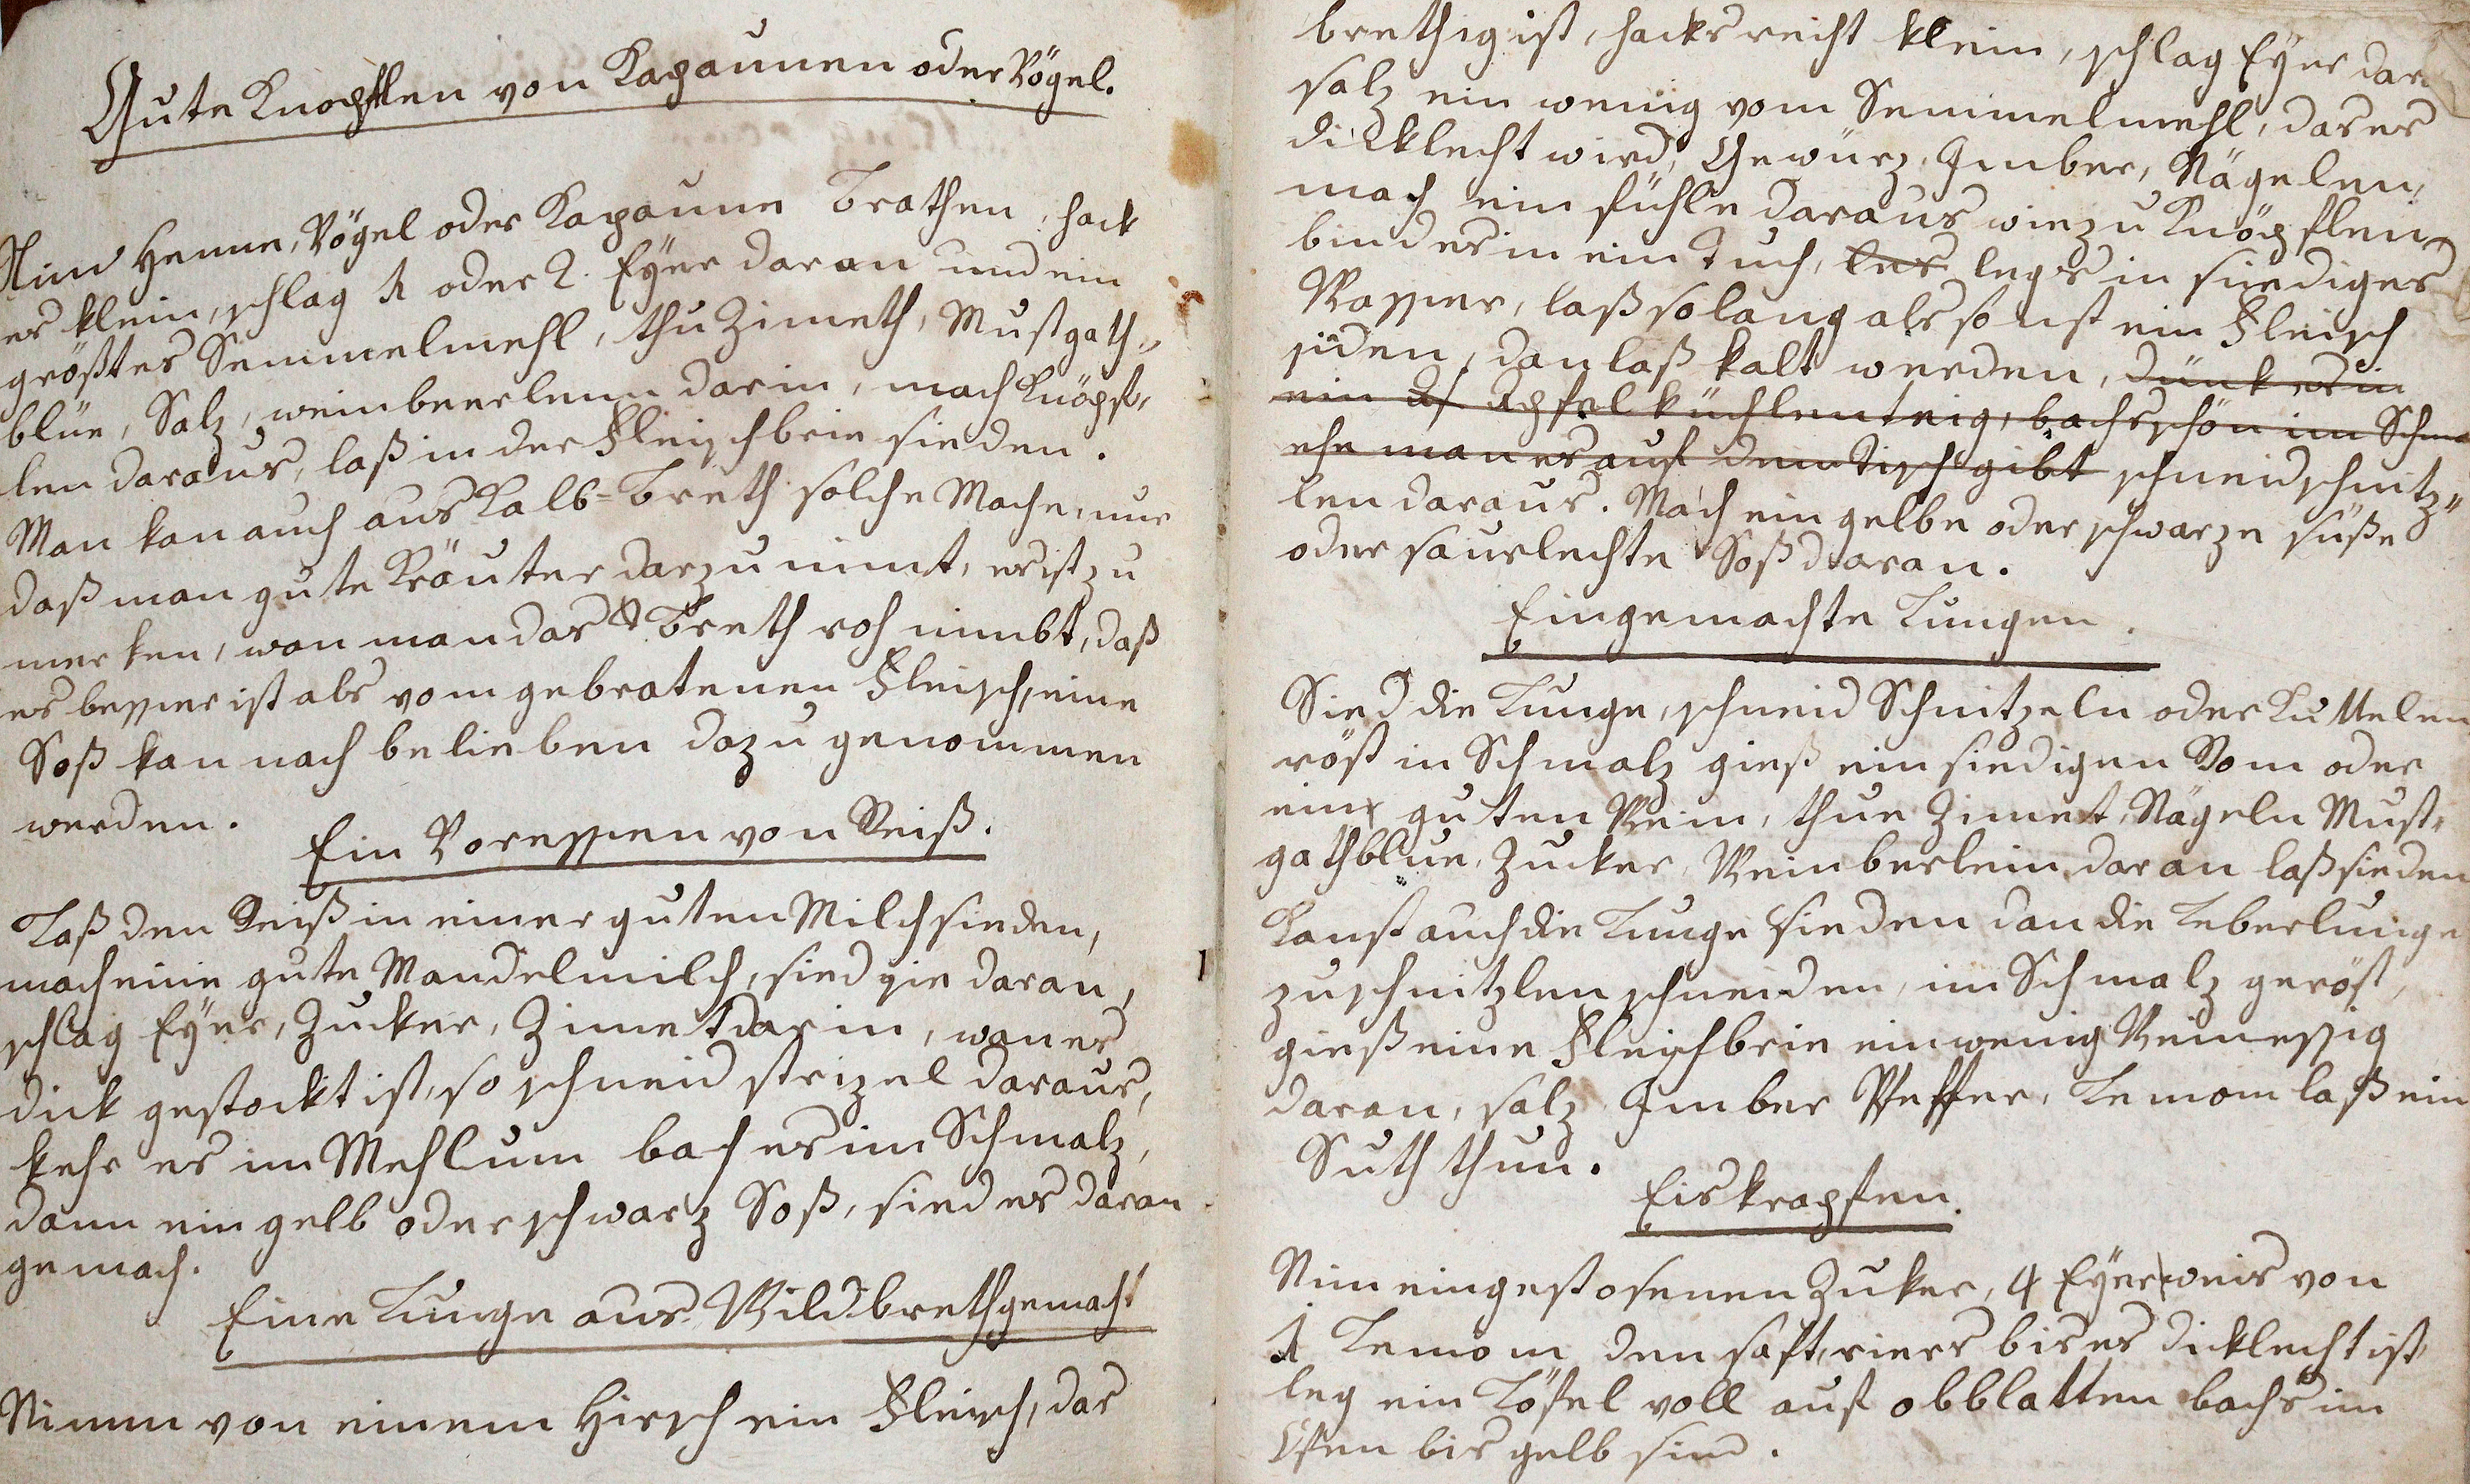 Gute Knopflen von Kapaunen oder Vögel.
Nim Henne, Vögel oder Kapaune Brathen, hack
es klein, schlag 1 oder 2. Eÿer daran und ein
größtes Semmelmehl, thu Zimeth, Mustgath-
blüe, Salz, weinbeerlenn darin, mach Knöpf-
len daraus, laß in der Fleischbrie sieden.
Man kan auch aus Kalb-Breth solche Mache, nur
daß man gute Kräuter darzu nimt, es ist zu
merken, wan man das Breth roh nimbt, daß
es besser ist als vom gebratenen Fleisch, eine
Soß kan nach belieben dazu genommen
werden.
Ein Voressen von Reiß.
Laß den Reiß in einer guten Milch sieden,
mach eine gute Mandelmilch, sied sie daran,
schlag Eÿer, Zucker, Zimet darin, wan es
dick gestockt ist, so schneid strizel daraus,
kehr es im Mehl um bach es im Schmalz,
dann ein gelb oder schwarz Soß, sied es daran
gemach.
Eine Lunge aus Wildbreth gemacht
Nimm von einem Hirsch ein Fleisch, das
brethig ist, hacks recht klein, schlag Eÿer dar
salz ein wenig vom Semmelmehl, das es
dicklecht wird, Gewürz, Imber, Nägelen,
mach ein fühle daraus wie zu Knöpflen,
bind es in ein Tuch, les legs in siediges
Wasser, laß so lang als sonst ein Fleisch
siden, dan laß kalt werden, dunk es in
ein Apfelküchlenteig, bachs schön im Schm
ehe man es auf dem Tisch gibt schneid schnitz-
len daraus. Mach ein gelbe oder schwarze süße
oder saurlechte Soß daran.
Eingemachte Lungen.
Sied die Lunge, schneid Schnitzeln oder Kuttelen
röst in Schmalz gieß ein siedigen Rom oder
ein guten Wein, thue Zimet, Nägeln Must-
gathblüe, Zucker, Weinberlein daran laß sieden
Kanst auch die Lunge sieden dan die Leberlunge
zu schnitzlen schneiden, im Schmalz geröst,
gieß eine Fleischbrie ein wenig Weinessig
daran, salz Imber Pfeffer, Lemom laß ein
Suth thun.
Eiskrapfen.
Nim ein gestosenen Zuker, 4 Eÿerweis von
1 Lemom den saft, riers bis es dicklecht ist,
leg ein Löfel voll auf obblatten bachs im
Ofen bis gelb sind.